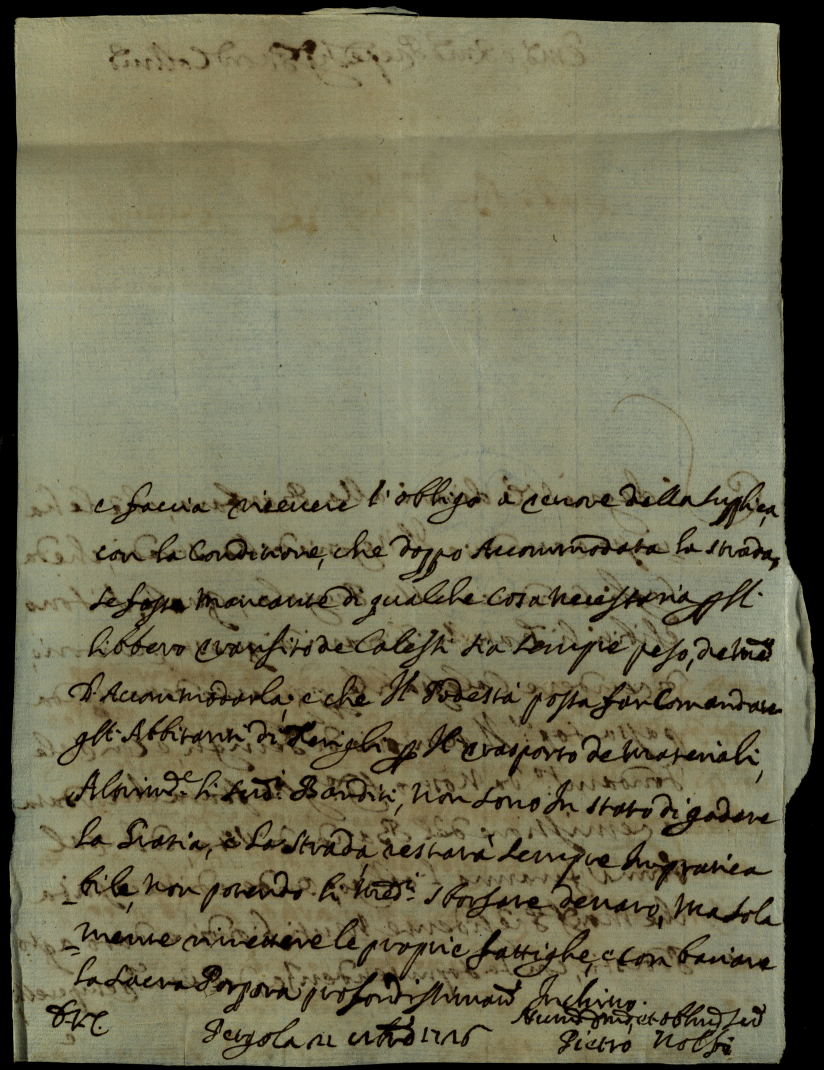 e faccia ricevere l'obligo a tenore della suplica,
con la Conditione, che doppo Accommodata la strada,
se fosse mancante di qualche cosa necessaria p Il
libbero transito de Calessi sia sempre peso, de med.i
D'Accommodarla, e che Il Podestà possa far Comandare
gl'Abbitanti di p Il trasporto de materiali,
li sud.i Banditi, non sono In stato di godere
la Gratia, e la strada restarà sempre Impratica
-bile, non potendo li med.i sborsare denaro, ma sola
=mente rimettere le proprie fattighe, e con baciare
la Sacra Porpora profondissimam.e Inchino.
Pergola 21 1716
Pietro